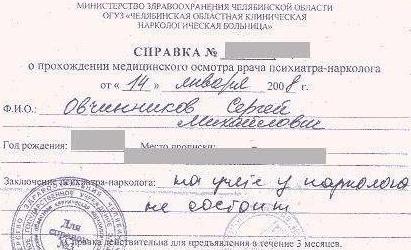 МИНИСТЕРСТВО ЗДРАВООХРАНЕНИЯ ЧЕЛЯБИНСКОЙ ОБЛАСТИ
ОГУЗ «ЧЕЛЯБИНСКАЯ ОБЛАСТНАЯ КЛИНИЧЕСКАЯ
НАРКОЛОГИЧЕСКАЯ БОЛЬНИЦА»
СПРАВКА №
о прохождении медицинского осмотра врача психиатра-нарколога
от « 14 » января 2008 г.
Ф.И.О.: Овчинников Сергей
Михайлович
Год рождения: Место прописки:
Заключение психиатра-нарколога: на учете у нарколога
не состоит
Для
справок
Справка действительна для предъявления в течение 3 месяцев.